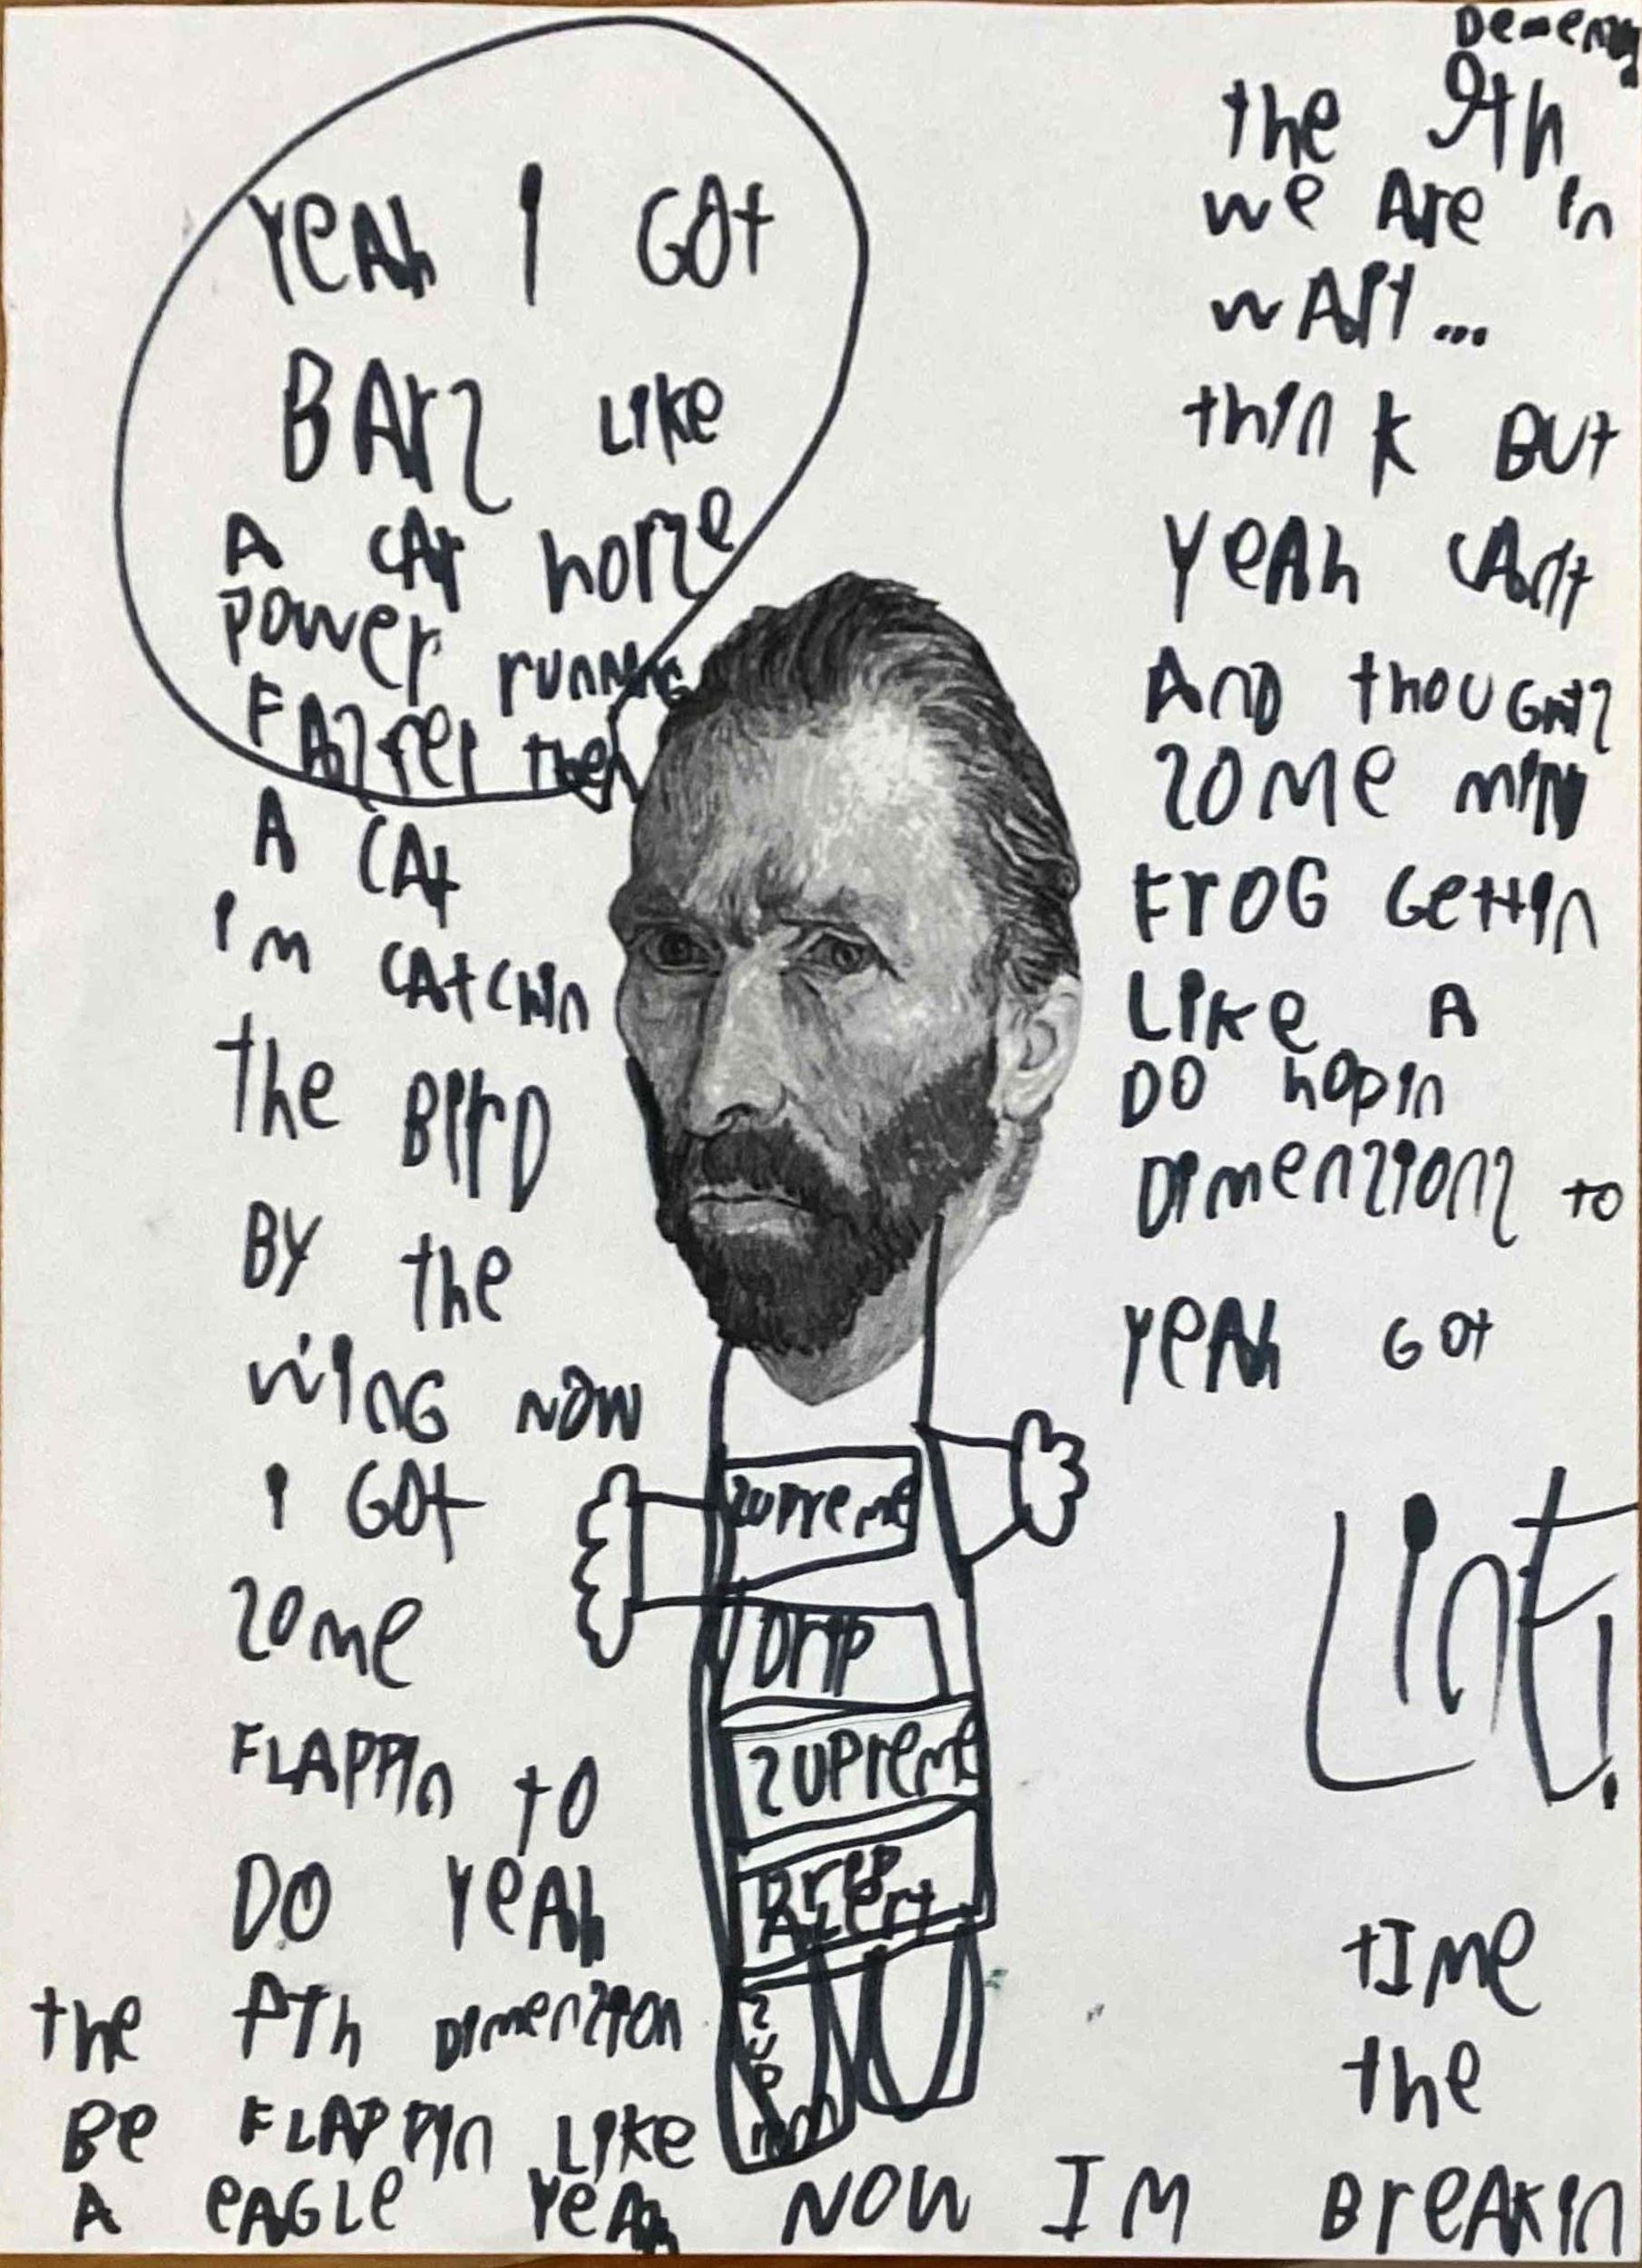 YeAh I GOt
BArz Like
A CAr horze
power runninG
FAzter then
A CAt
I'm CAtchin
the BirD
BY the
winG NOW
I GOt
zome
FLAPPin to
DO YeAh
the Dimenzion
Be FLAPPin Like
A eAGLe YeAh NOW IM BreAkin
the
tIme
Lint!
YeAh GOt
Dimenzionz to
DO hopin
Like A
FrOG Gettin
zome
AnD thouGhtz
YeAh CAnt
think But
wAit...
we Are in
the 9th
zupreme
Drip
zupreme
Drip
ALert